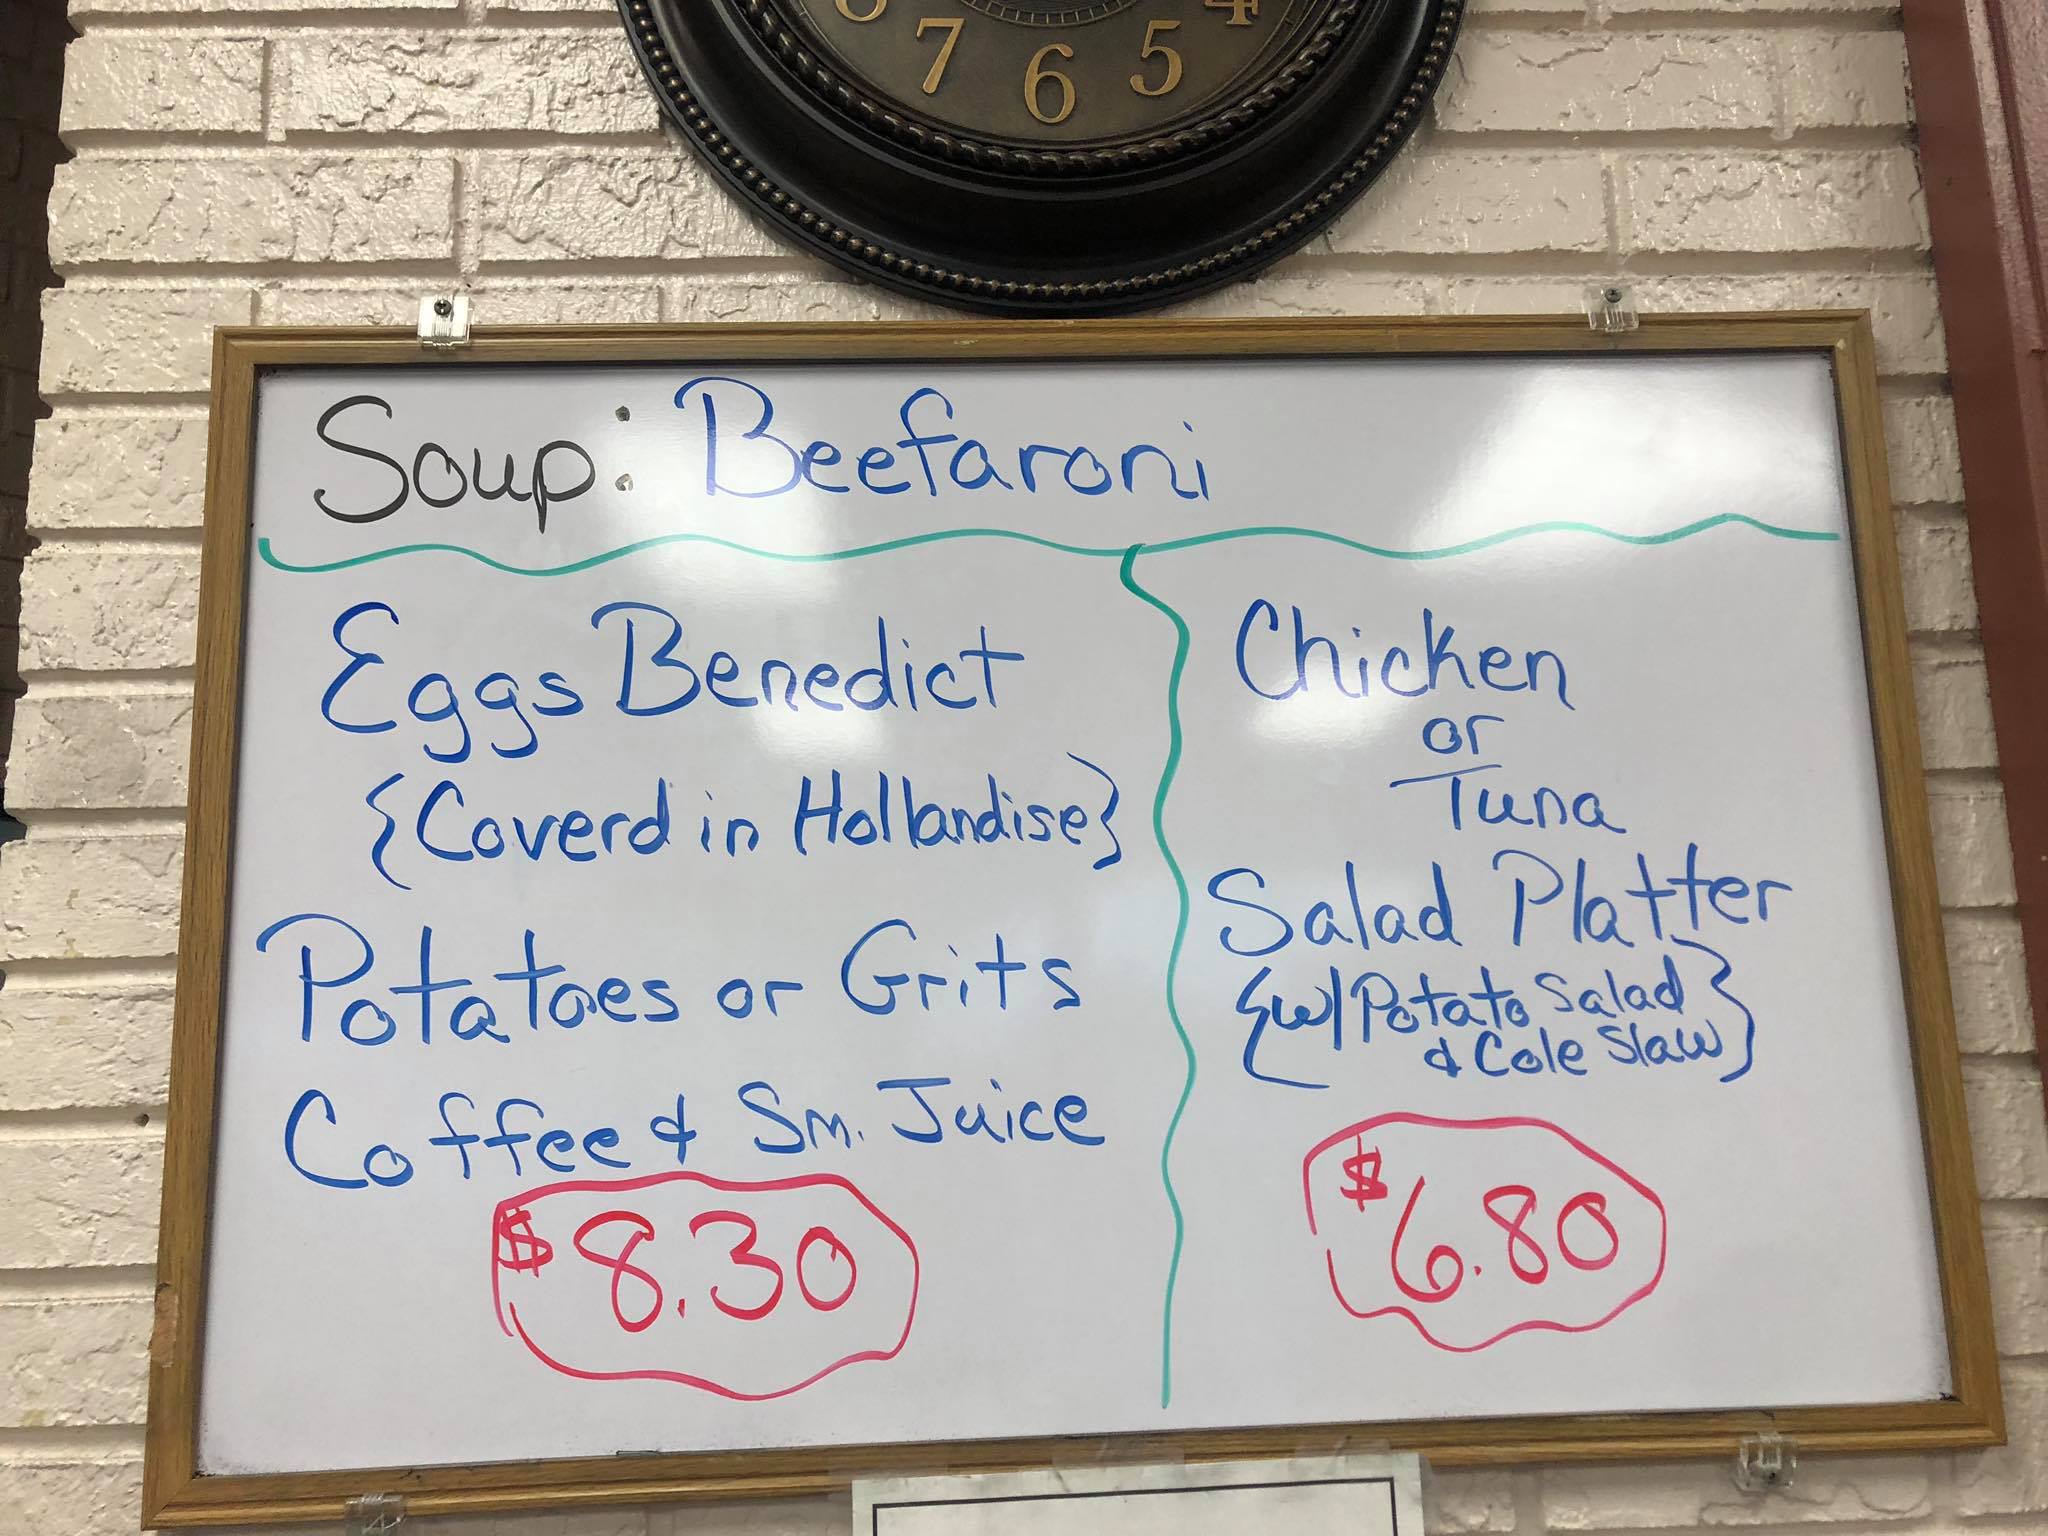 8 7 6 5 4
Soup: Beefaroni
Eggs Benedict
{Coverd in Hollandise}
Potatoes or Grits
Coffee & Sm. Juice
$8.30
Chicken
or
Tuna
Salad Platter
{w/ Potato Salad
& Cole Slaw}
$6.80